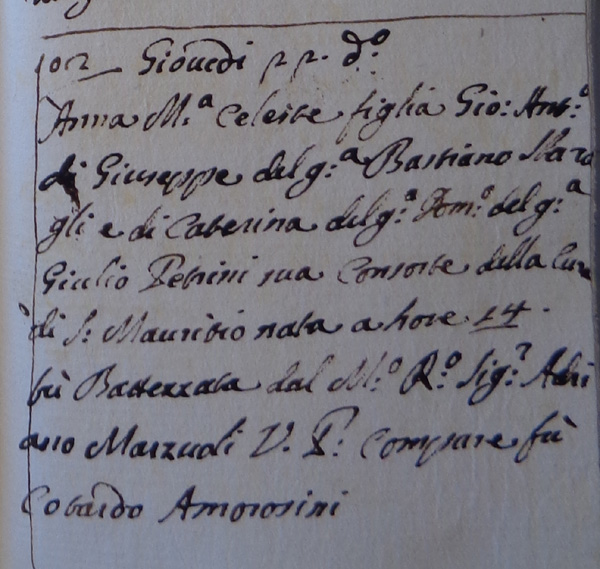 102 Giovedi 22. d.º
Anna M.ª Celeste figlia Gio: Ant.º
di Giuseppe del q.ª Bastiano
gli e di Caterina del q.ª Dom.º del q.ª
Giulio Petrini sua Consorte della Cura
di S. Mauritio nata a hore 14.
fù Battezzata dal M.º R.º Sig.r Adri
ano Marzuoli V. P. Compare fù
Amorosini